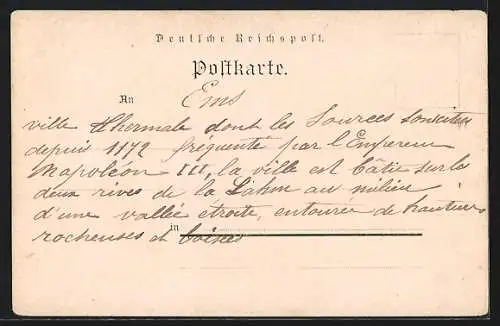 Deutsche Reichspost.
Postkarte.
An Ems
ville thermale dont les Sources sont citées
depuis 1172 fréquenté par l'Empereur
Napoléon III, la ville est bâtie sur les
deux rives de la Lahn au milieu
d'une vallée étroite, entourée de hauteurs
in
rocheuses et boisées